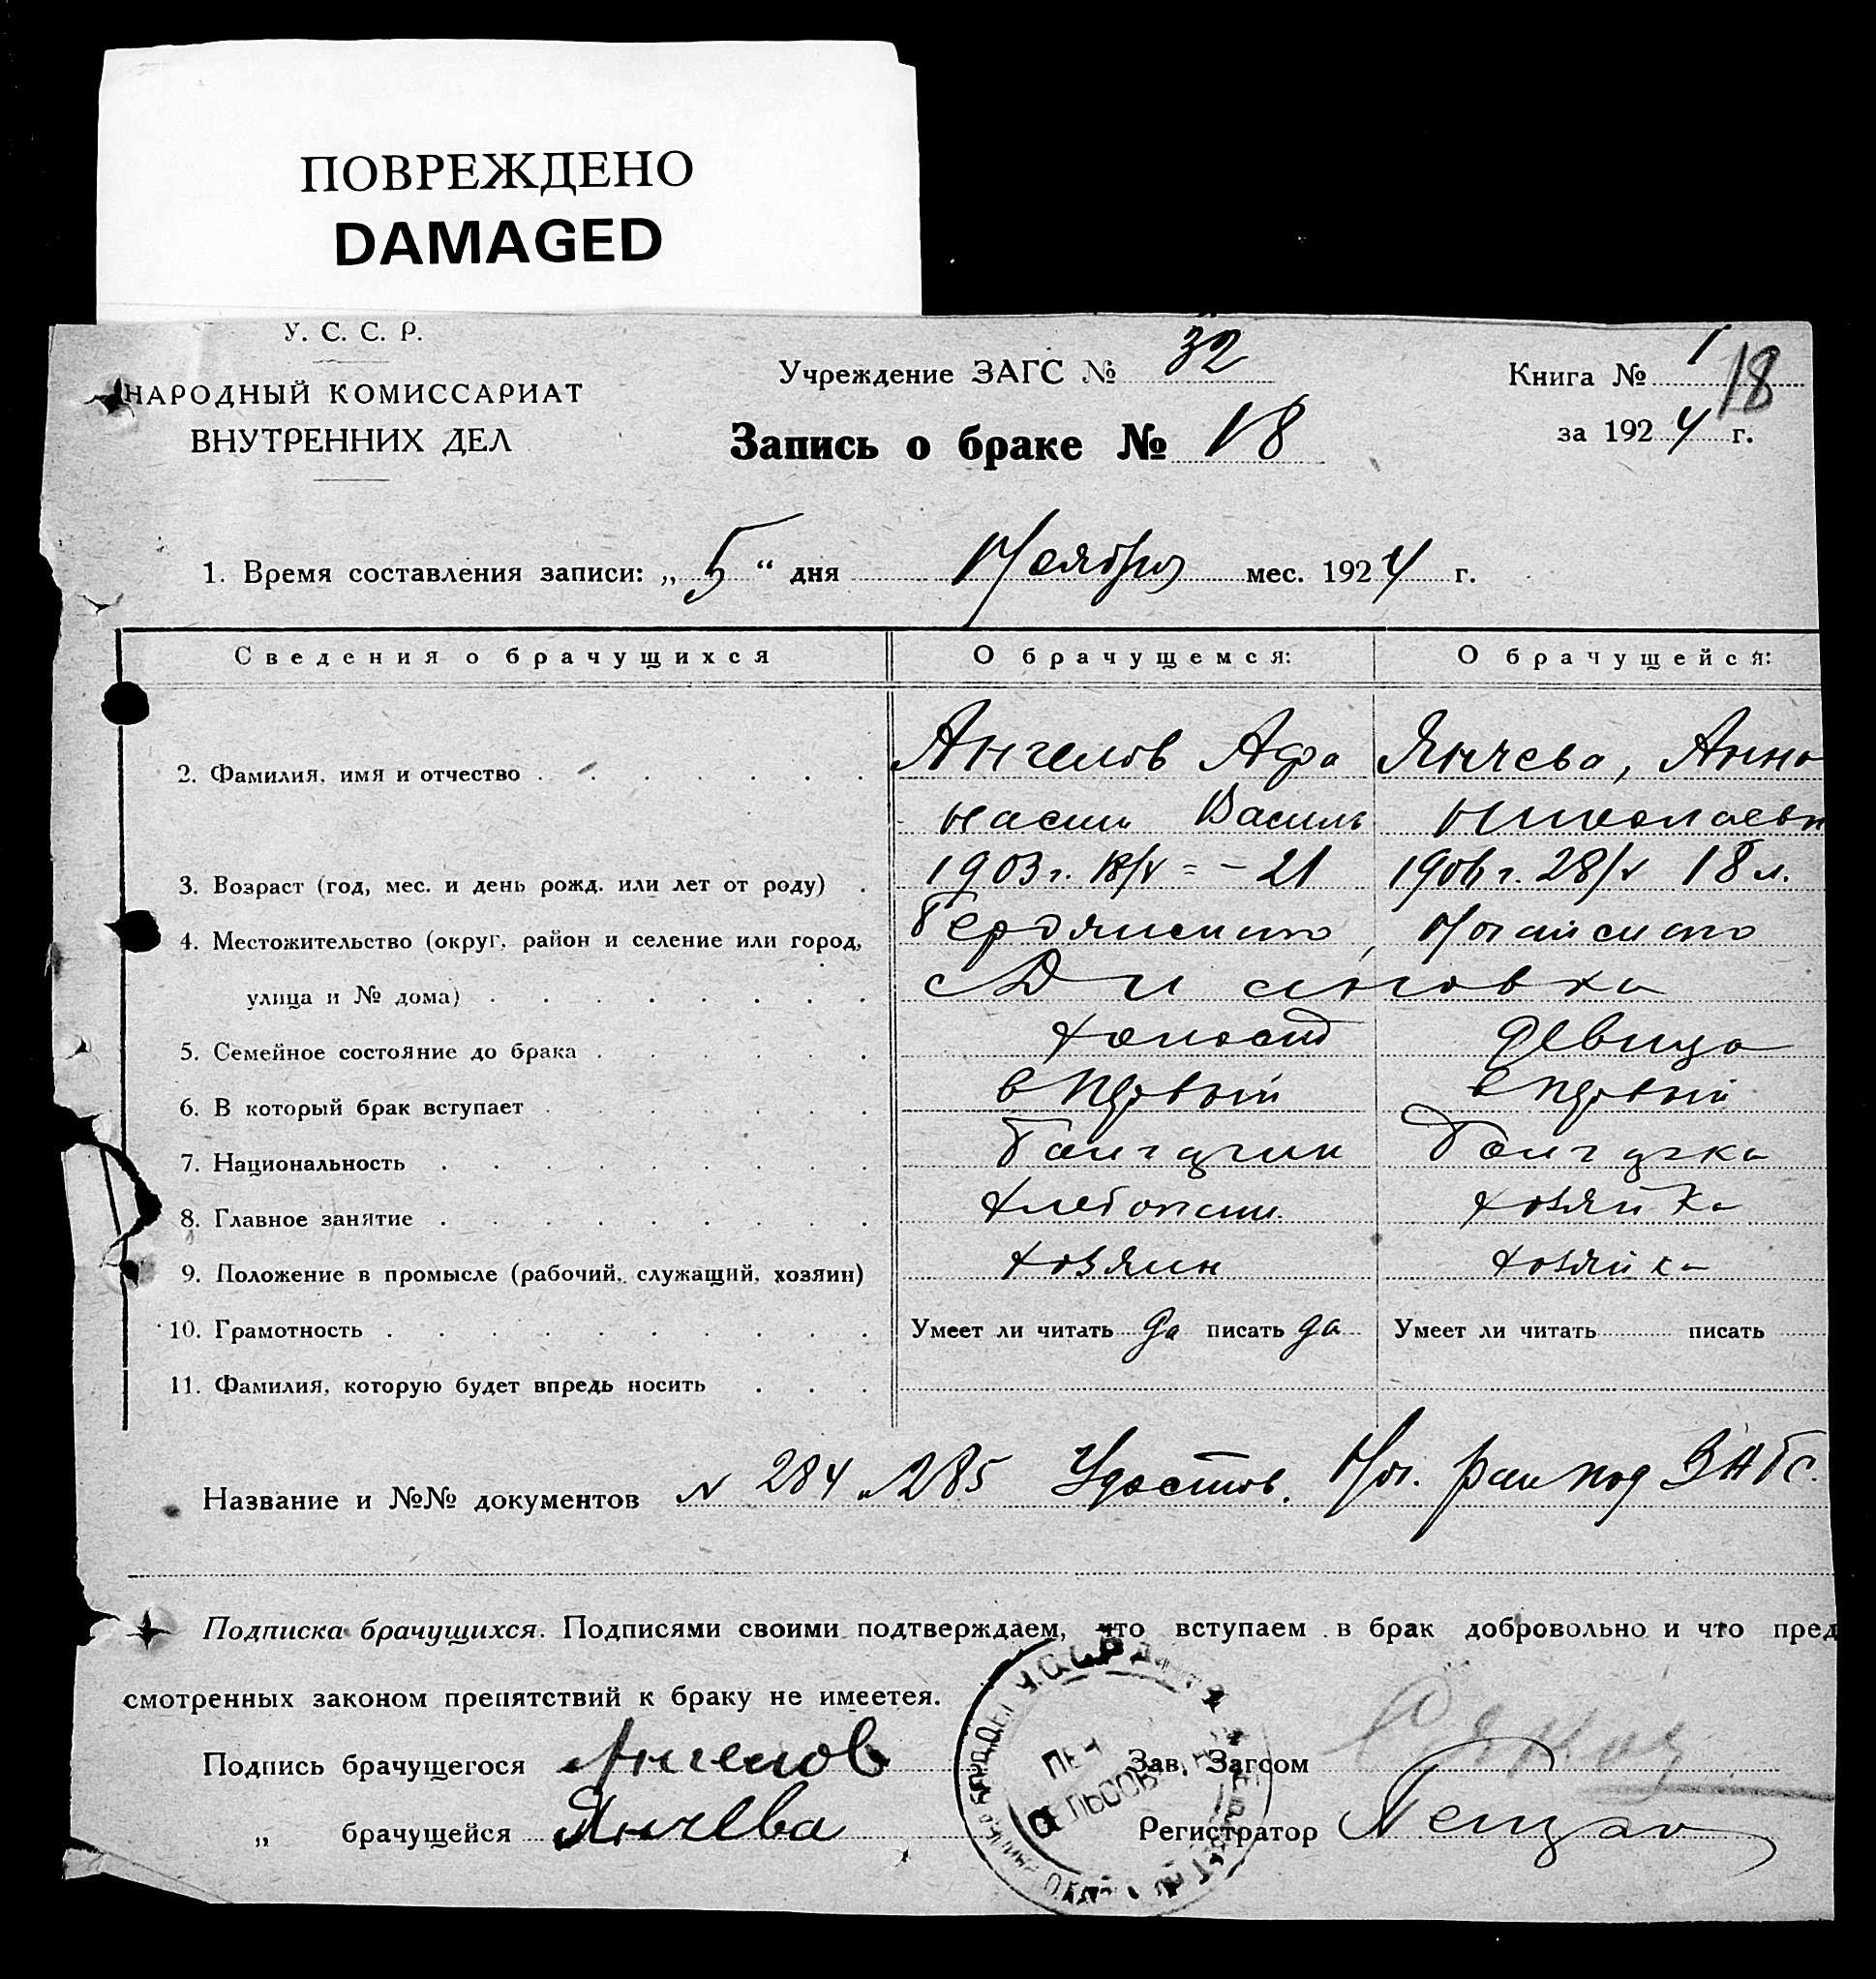 ПОВРЕЖДЕНО
DAMAGED
У. С. С. Р.
НАРОДНЫЙ КОМИССАРИАТ
ВНУТРЕННИХ ДЕЛ
Учреждение ЗАГС № 32
Запись о браке № 18
Книга № 1
18
за 1924 г.
1. Время составления записи: „ 5 “ дня Ноября мес. 1924 г.
Сведения о брачущихся О брачущемся: О брачущейся:
2. Фамилия, имя и отчество Ангелов Афа Янчева, Анна
насий Василь Николаевн
3. Возраст (год, мес. и день рожд. или лет от роду) 1903 г. 18/V = - 21 1906 г. 28/V 18 л.
4. Местожительство (округ, район и селение или город, Бердянского, Ногайского
улица и № дома) с Диановка
5. Семейное состояние до брака холост девица
6. В который брак вступает в первый в первый
7. Национальность болгарин болгарка
8. Главное занятие хлебопаш. хозяйка
9. Положение в промысле (рабочий, служащий, хозяин) хозяин хозяйка
10. Грамотность Умеет ли читать да писать да Умеет ли читать писать
11. Фамилия, которую будет впредь носить
Название и №№ документов № 284 и 285 Удостов. Ног. рай под ЗАГС.
Подписка брачущихся. Подписями своими подтверждаем, что вступаем в брак добровольно и что пред
смотренных законом препятствий к браку не имеетея.
Подпись брачущегося Ангелов
Зав. Загсом
„ брачущейся Янчева
Регистратор